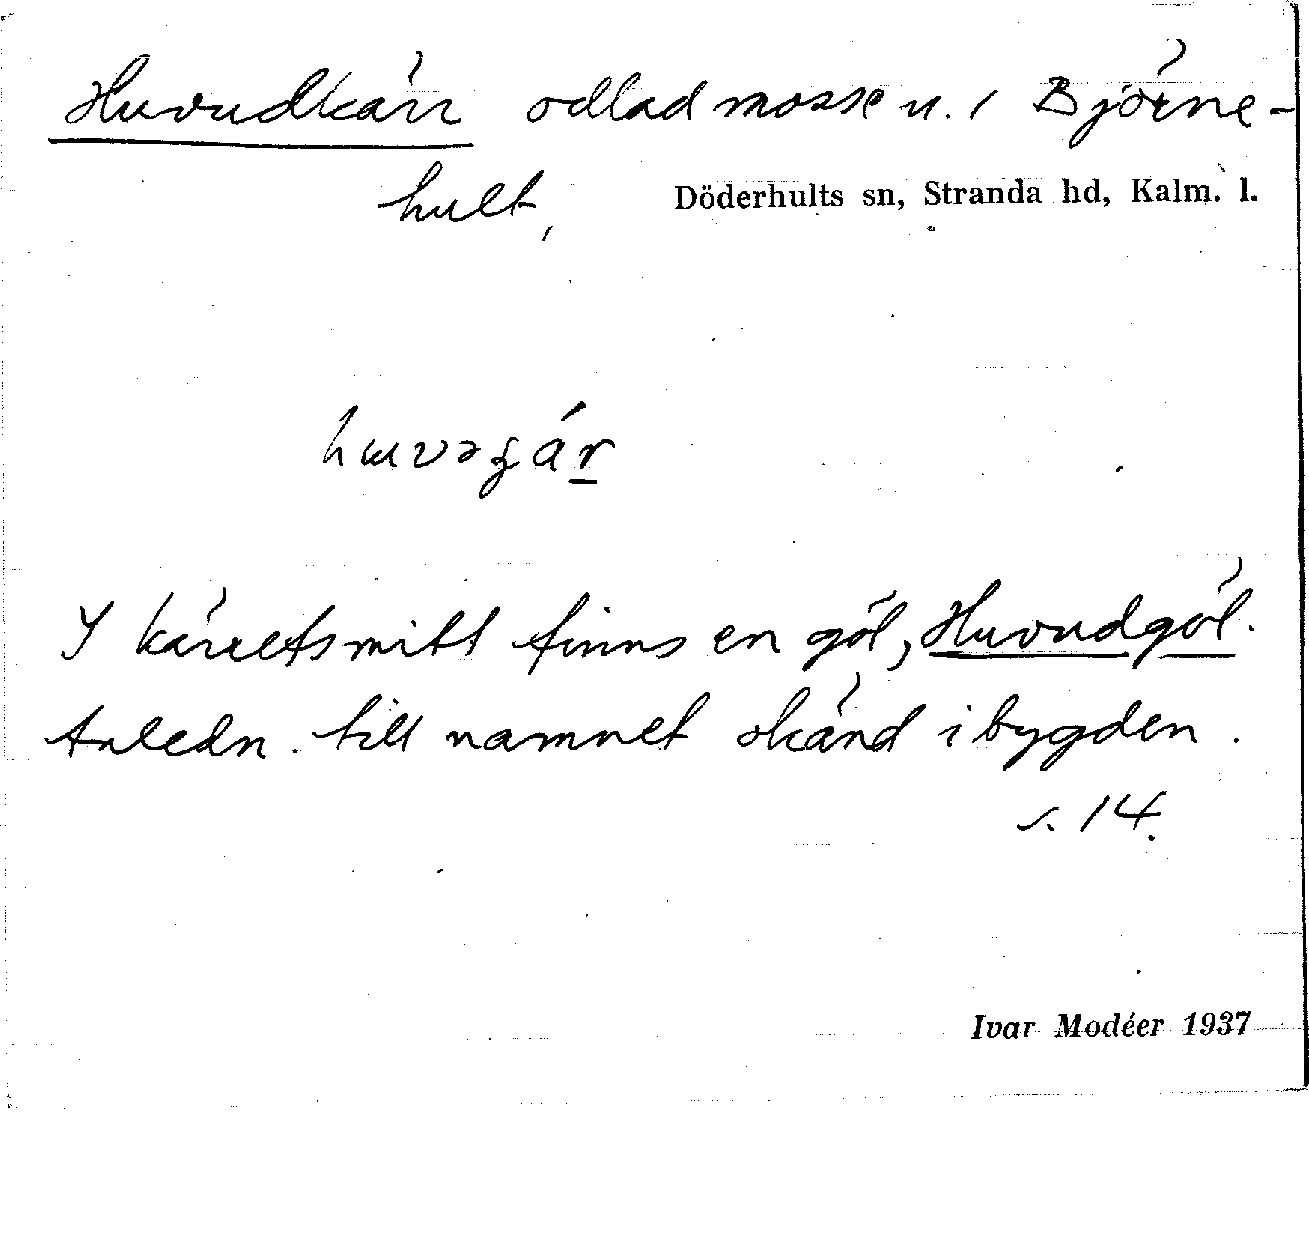 Huvudkärr odlad mosse u. / Björne-
hult, Döderhults sn, Stranda hd, Kalm. l.
I kärrets mitt finns en göl, Huvudgöl.
Anledn. till namnet okänd i bygden.
s. 14.
Ivar Modéer 1937